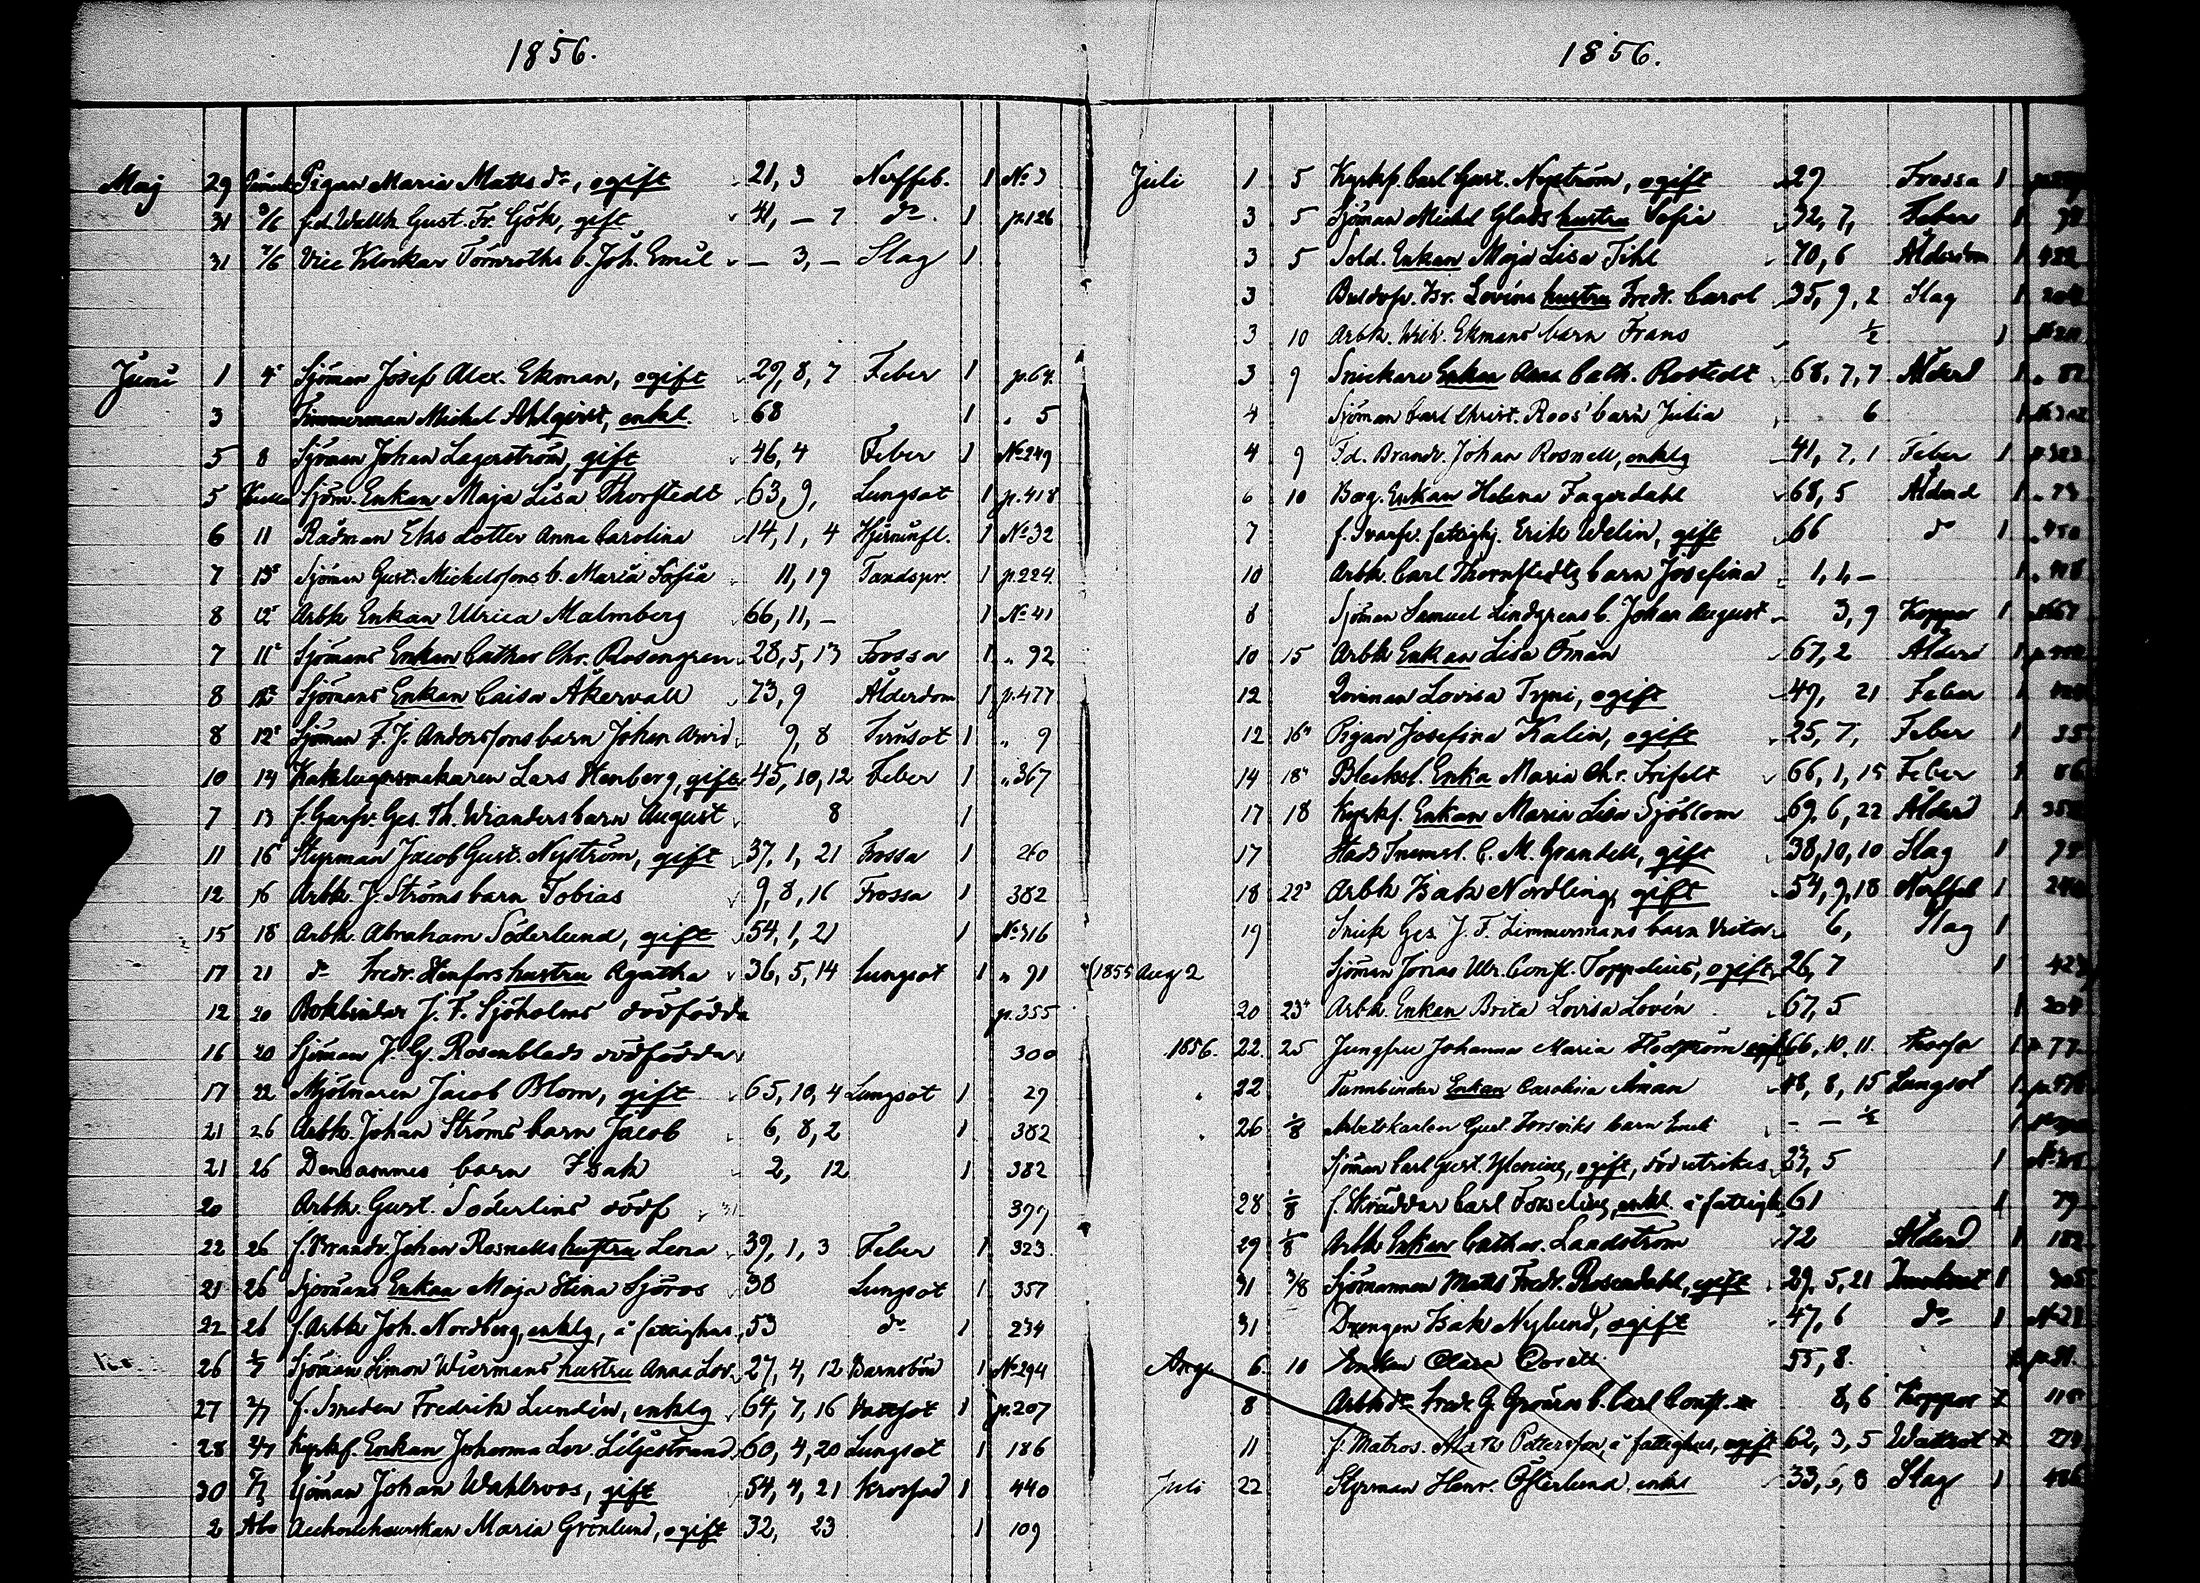 1856.
Maj 29 Pigan Maria Matts dr, ogift 21, 3 Nerffeb. 1 No 3
31 3/6 f.d. Wakth Gust. Fr. Gök, gift 41, — 7 do. 1 p.126
31 7/6 Vice Klockar Törnroths b. Joh. Emil — 3, — Slag 1
Juni 1 4 Sjöman Josef Alex. Ekman, ogift 29, 8, 7 Feber 1 p.64
3 Timmerman Michel Ahlqvist, enkl. 68 1 " 5
5 8 Sjöman Johan Lagerström, gift 46, 4 Feber 1 No 249
5 Sjöm. Enkan Maja Lisa Thorstedt 63, 9, Lungsot 1 p.418
6 11 Rådman Eks dotter Anna Carolina 14, 1, 4 Hjerninfl. 1 No 32
7 13 Sjöman Gust. Michelssons b. Maria Sofia 11, 19 Tandspr. 1 p.224
8 12 Arbk Enkan Ulrica Malmberg 66, 11, — 1 No 41
7 11 Sjömans Enkan Cathar. Chr. Rosengren 28, 5, 13 Frossa 1 " 92
8 12 Sjömans Enkan Caisa Åkervall 73, 9 Ålderdom 1 p.477
8 12 Sjöman F. J. Anderssons barn Johan Arvid 9, 8 1 " 9
10 14 Kakelugnsmakaren Lars Stenberg, gift 45, 10, 12 Feber 1 " 367
7 13 f. Garfv. Ges. Th. Wianders barn August 8 1
11 16 Styrman Jacob Gust. Nyström, gift 37, 1, 21 Frossa 1 20
12 16 Arbk. J. Ströms barn Tobias 9, 8, 16 Frossa 1 382
15 18 Arbk. Abraham Söderlund, gift 54, 1, 21 1 No 316
17 21 do Fredr. Stenfors hustru Agatha 36, 5, 14 Lungsot 1 " 91
12 20 Bokbindar J. F. Sjöholms dödfödda p.355
16 20 Sjöman J. G. Rosenblads dödfödda 300
17 22 Mjölnaren Jacob Blom, gift 65, 10, 4 Lungsot 1 29
21 26 Arbk. Johan Ströms barn Jacob 6, 8, 2 1 382
21 26 Densammes barn Isak 2, 12 1 382
20 Arbk. Gust. Söderlins dödf 397
22 26 f. Brandv. Johan Rosnells hustru Lena 39, 1, 3 Feber 1 323
21 26 Sjömans Enkan Maja Stina Sjöros 38 Lungsot 1 357
22 26 f. Arbk Joh. Nordberg, enklg, å fattighus 53 do 1 234
26 1/7 Sjöman Simon Wiermans hustru Anna Lov. 27, 4, 12 Barnsbörd 1 No 294
27 2/7 f. Smeden Fredrik Lundén, enklg 64, 7, 16 Vattsot 1 p.207
28 2/7 Kyrkf. Enkan Johanna Lov. Liljestrand 60, 4, 20 Lungsot 1 186
30 Sjöman Johan Wahlroos, gift 54, 4, 21 1 440
2 Åbo Maria Grönlund, ogift 32, 23 1 109
1856.
Juli 1 5 Kyrkf. Carl Gust. Nyström, ogift 29 Frossa 1
3 5 Sjöman Michel Glads hustru Sofia 32, 7, Feber 1
3 5 Sold. Enkan Maja Lisa Tihl 70, 6 Ålderdom 1 482
3 Lovéns hustru Fredr. Carol 35, 9, 2 Slag 1 204
3 10 Arbk. Wilh. Ekmans barn Frans ½ 1
3 9 Snickare Enkan Anna Cath. Rostedt 68, 7, 7 Ålderd 1 " 82
4 Sjöman Carl Christ. Roos' barn Julia 6 1
4 9 Fd. Brandv. Johan Rosnell, enklg 41, 7, 1 Feber 1 p.323
6 10 Bag. Enkan Helena Fagerdahl 68, 5 Ålderd 1
7 f. Svarfv. fattighj. Erik Welin, gift 66 do 1 450
10 Arbk. Carl Thornstedts barn Josefina 1, 1, — 1
8 Sjöman Samuel Lindgrens b. Johan August 3, 9 Koppor 1
10 15 Arbk Enkan Lisa Öman 67, 2 Ålderd 1
12 Qvinnan Lovisa Tyni, ogift 49, 21 Feber 1
12 16 Pigan Josefina Kalin, ogift 25, 7, Feber 1 35
14 18 Blecksl. Enka Maria Chr. Frifelt 66, 1, 15 Feber 1 86
17 18 Kyrkf. Enkan Maria Lisa Sjöblom 69, 6, 22 Ålderd 1
17 C. M. Grandell, gift 38, 10, 10 Slag 1
18 22 Arbk Isak Nordling, gift 54, 9, 18 Nerffeb 1
19 Snick Ges. J. F. Zimmermans barn 6, Slag 1
(1855 Aug 2 Sjöman Jonas Ulr. Const. Toppelius, ogift 26, 7 1
20 23 Arbk. Enkan Brita Lovisa Lovén 67, 5 1 204
1856. 22. 25 Jungfru Johanna Maria 66, 10, 11. 1 p. 77
22 Tunnbindar Enkan Carolina Åman 48, 8, 15 Lungsot 1
26 1/8 Arbetskarlen Gust. Forsviks barn — — ½ 1
Sjöman Carl Gust. ogift, död utrikes 23, 5 1
28 1/8 f. Skräddar Carl Forselius, enkl. å fattigh. 61 1 79
29 1/8 Arbk Enkan Cathar. Landström 72 Ålderd 1 182
31 3/8 Sjömannen Matts Fredr. Rosendahl, gift 29, 5, 21 1 305
31 Drengen Isak Nylund, ogift 47, 6 do 1 No 21
Aug 6. 10 Enkan Clara 55, 8.
8 Arbk G. Grönros b. Carl Const. 8, 6 Koppor
11 f. Matros. Matts Pettersson, å fattighus, ogift 62, 3, 5 Wattsot
Juli 22 Styrman Henr. Österlund, enkl 33, 5, 8 Slag 1 486